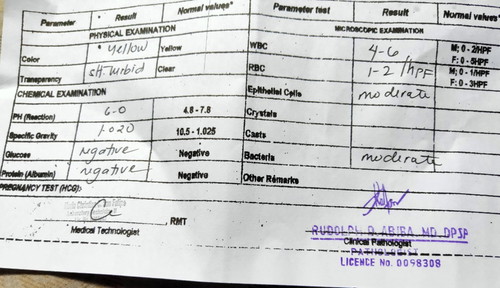 Parameter Result Normal values* Parameter test Result Normal values*
PHYSICAL EXAMINATION MICROSCOPIC EXAMINATION
Color yellow Yellow WBC 4-6 M; 0 - 2/HPF
F: 0 - 5/HPF
Transparency slt-turbid Clear RBC 1-2 /HPF M; 0 - 1/HPF
F: 0 - 3HPF
CHEMICAL EXAMINATION Epithelial Cells moderate
PH (Reaction) 6-0 4.8 - 7.8 Crystals
Specific Gravity 1-020 10.5 - 1.025 Casts
Glucose ngative Negative Bacteria moderate
Protein (Albumin) ngative Negative Other Remarks
PREGNANCY TEST (HCG):
, RMT
Medical Technologist
RUDOLPH D. MD. DPSP
Clinical Pathologist
PATHOLOGIST
LICENCE No. 0098308